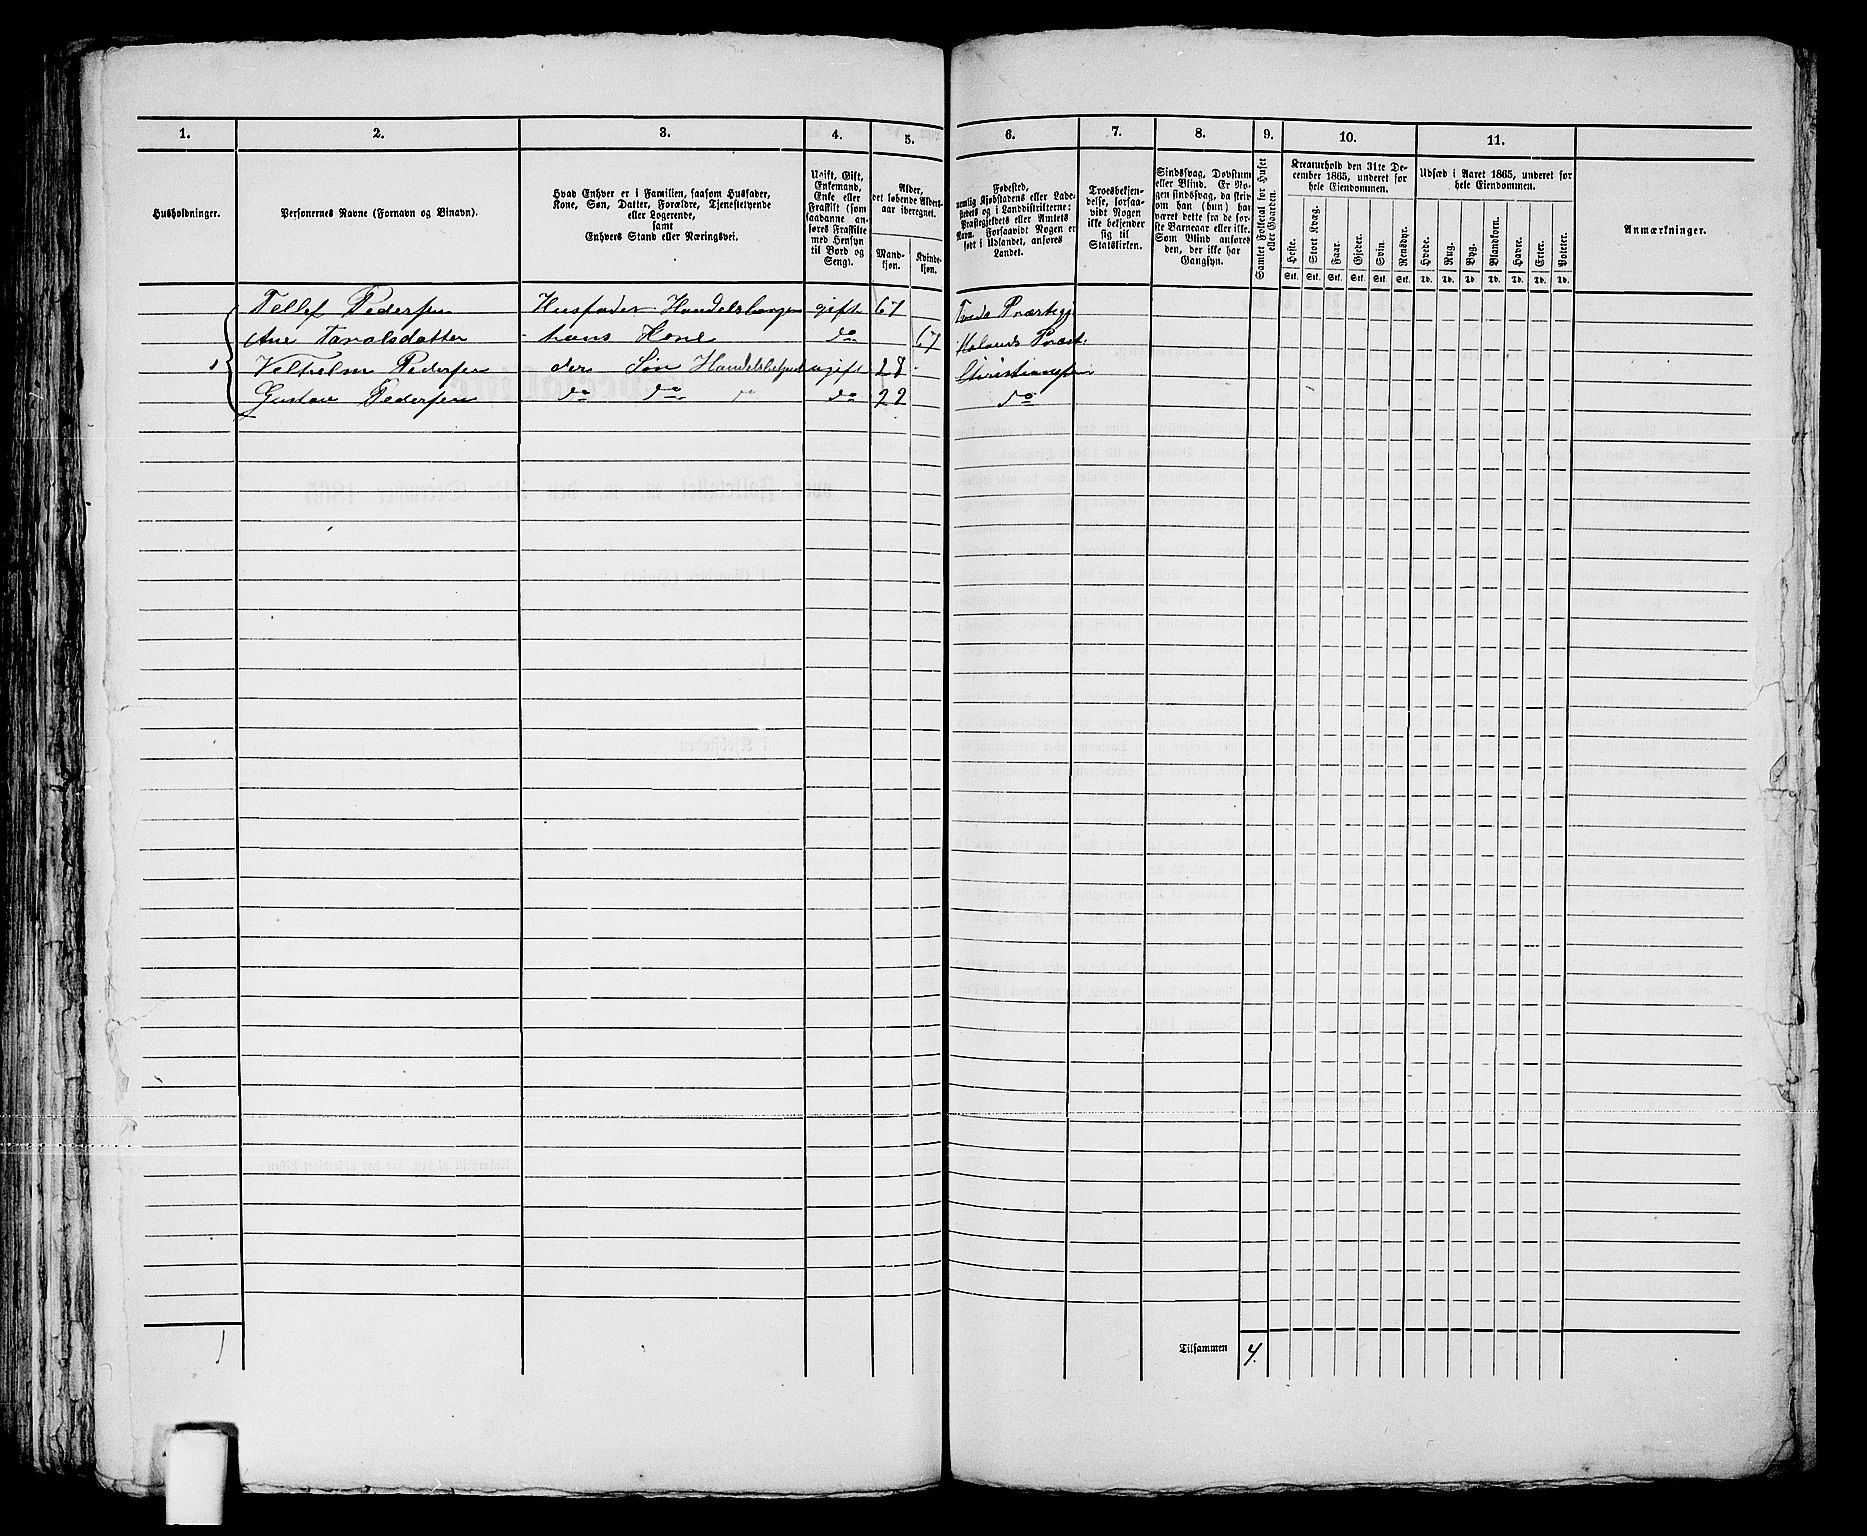 1. 2. 3. 4. 5. 6. 7. 8. 9. 10. 11.
Husholdninger.
Personernes Navne (Fornavn og Binavn).
Hvad Enhver er i Familien, saasom Husfader,
Kone, Søn, Datter, Forældre, Tjenestetyende
eller Logerende,
samt
Enhvers Stand eller Næringsvei.
Ugift, Gift,
Enkemand,
Enke eller
Fraskilt (som
saadanne an-
føres Fraskilte
med Hensyn
til Bord og
Seng).
Alder,
det løbende Alders-
aar iberegnet.
Mand-
kjøn.
Kvinde-
kjøn.
Fødested,
nemlig Kjøbstadens eller Lade-
stedets og i Landdistrikterne:
Præstegjeldets eller Amtets
Navn. Forsaavidt Nogen er
født i Udlandet, anføres
Landet.
Troesbekjen-
delse, forsaa-
vidt Nogen
ikke bekjender
sig til
Statskirken.
Sindssvag, Døvstum
eller Blind. Er No-
gen sindssvag, da skri-
ves om han (hun) har
været dette fra de før-
ste Barneaar eller ikke.
Som Blind anføres
den, der ikke har
Gangsyn.
Samlet Folketal for Huset
eller Gaarden.
Kreaturhold den 31te De-
cember 1865, underet for
hele Eiendommen.
Heste. Stort Kvæg. Faar. Gjeder. Svin. Rensdyr.
Stk. Stk. Stk. Stk. Stk. Stk.
Udsæd i Aaret 1865, underet for
hele Eiendommen.
Hvede. Rug. Byg. Blandkorn. Havre. Erter. Poteter.
Td. Td. Td. Td. Td. Td. Td.
Anmærkninger.
Tellef Pedersen Husfader gift 67 Præstegj
Ane Taralsdatter hans Kone do 67 Præst.
1 Velhelm Pedersen der Søn ugift 28 Christiansen
Gustav Pedersen do do do do 22 do
1
Tilsammen 4.